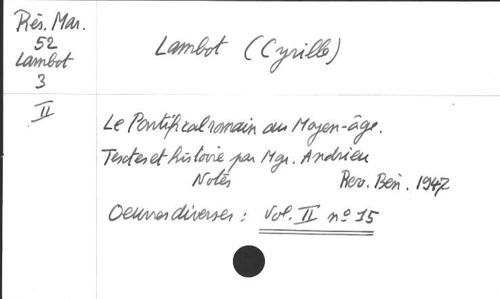 Rés. Mar.
52
Lambot
3
II
Lambot (Cyrille)
Le Pontifical romain au Moyen-âge.
Textes et histoire par Mgr. Andrieu
Notes Rev. Bén. 1947
Oeuvres diverses : Vol. II nº 15